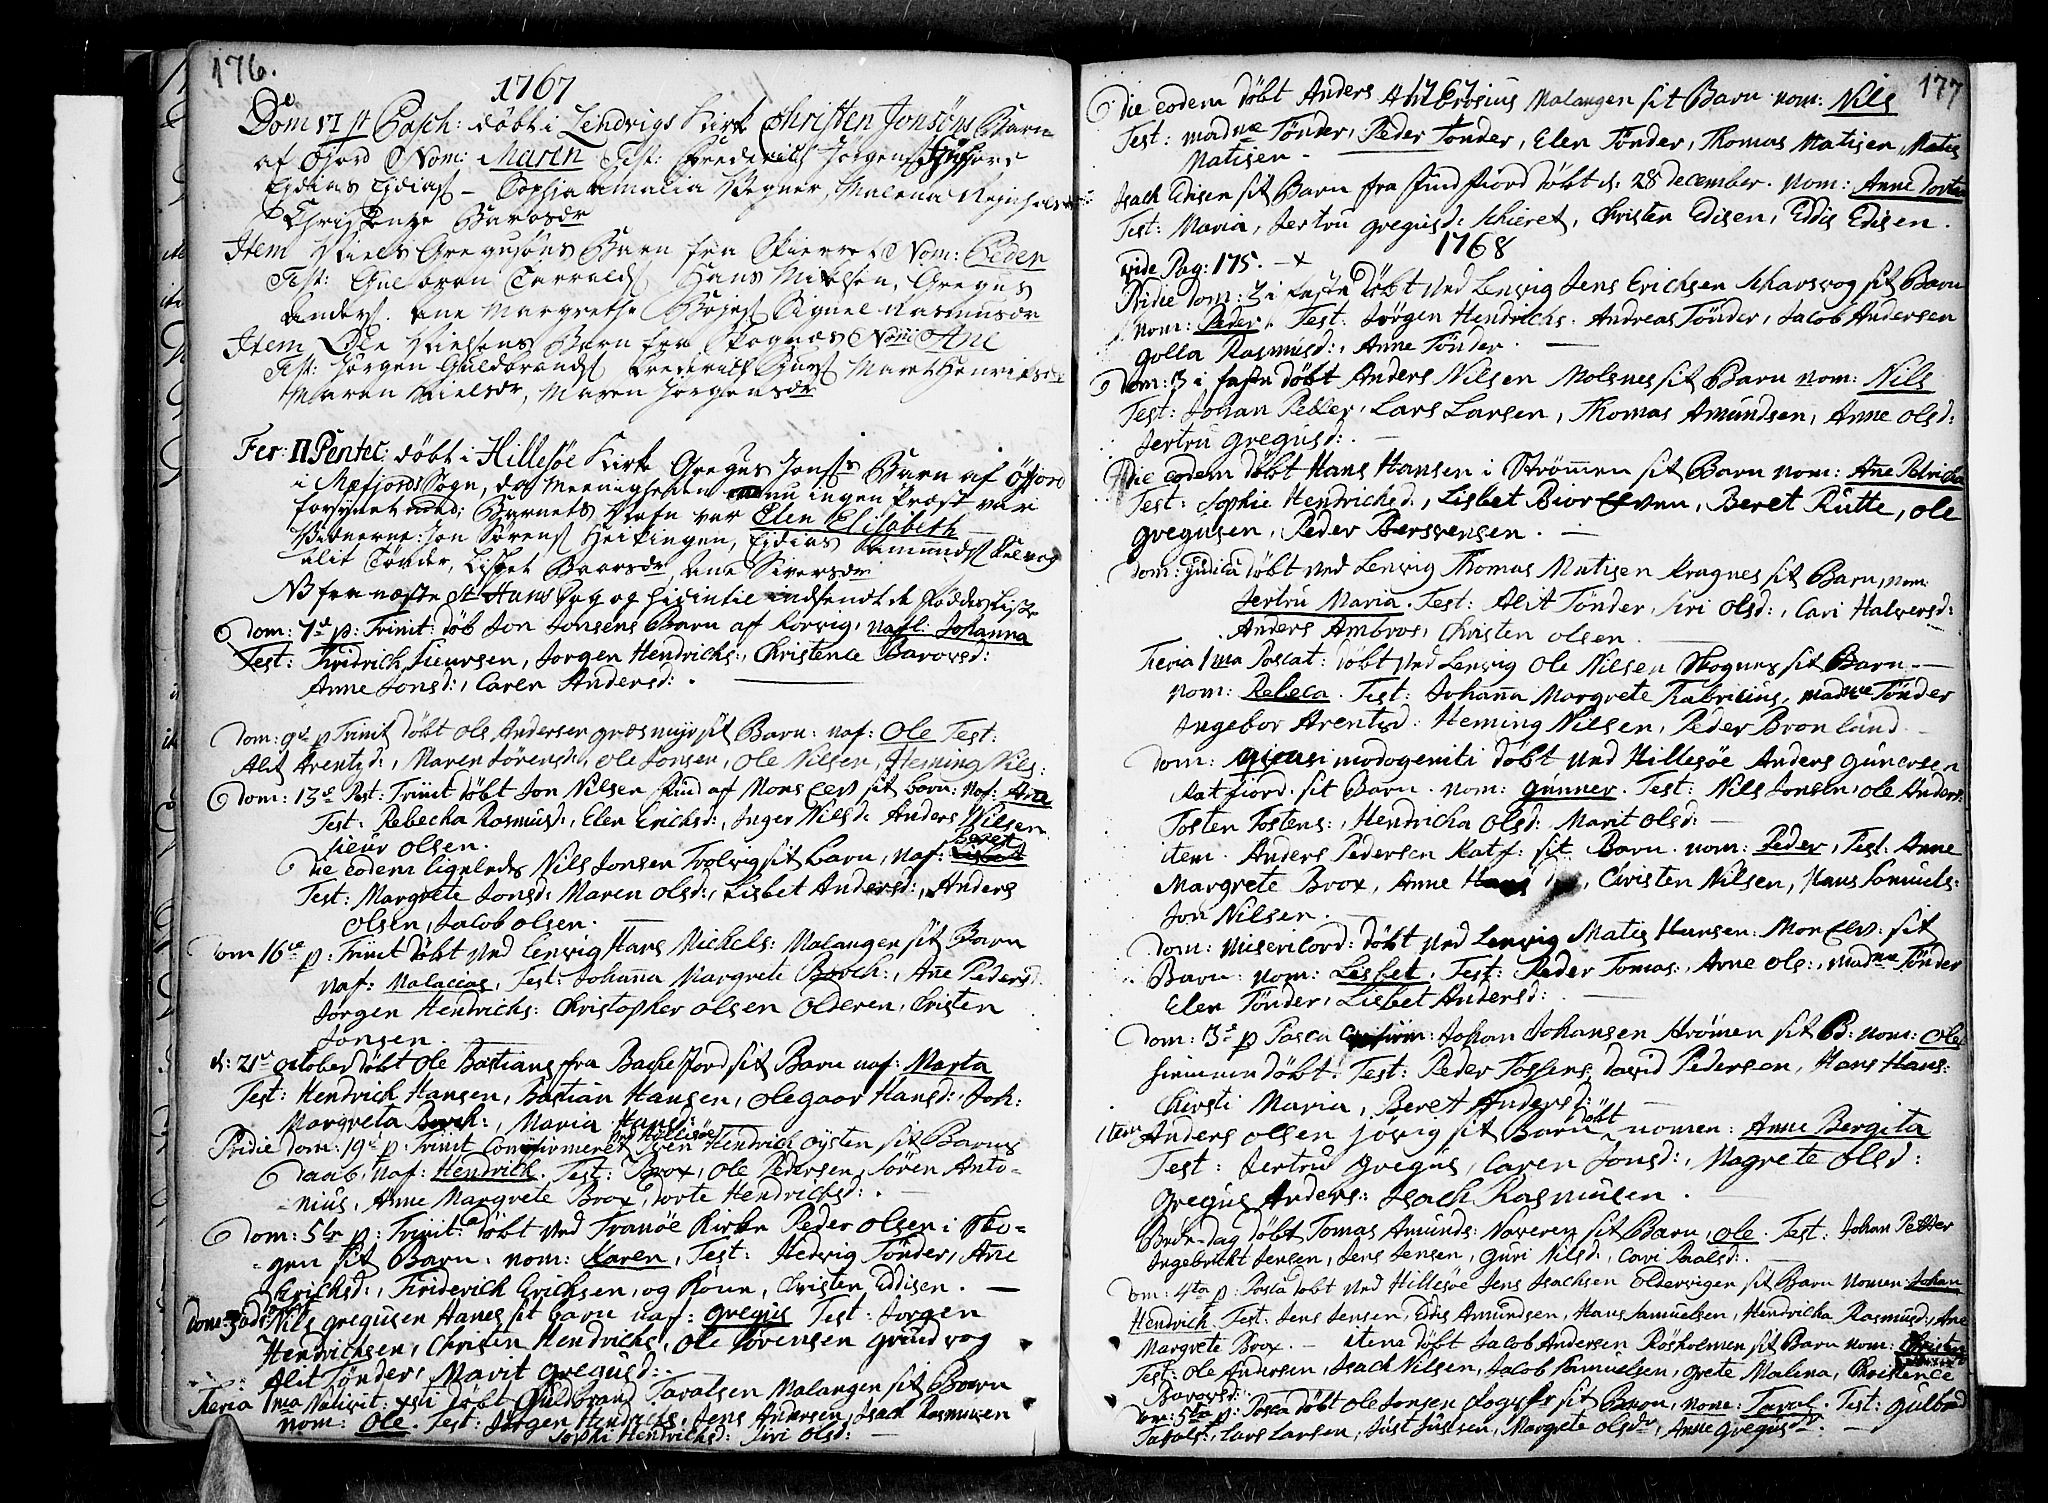 176.
1767
Dom VI p Pasch: döbt i Lendvigs Kirk Christen Jonsöns Barn
af Öfjord Nom: Maren Test: Frederich Jörgens
Eidias Eidias - Sophia Amalia Wegner, Malena
Barosdr
Item Niels Gregusöns Barn fra Skierret Nom: Peder
Test: Gulbran Tarralds Hans Mikelsen, Gregus
Anders. Ane Margrethe Signel Rasmusdr
Item Ole Nielsens Barn fra Skognæs Nom: Ane
Test: Jörgen Guldbrands Frederich Maret Henriksdr
Maren Nielsdr, Maren Jörgensdr
Fer: II Pentec: döbt i Hillesöe Kirke Gregus Jons Barn af Öfjord
i Mefjords Sogn, da Meenigheden nu ingen Præst var
forsynet med; Barnets Nafn var Elen Elisabeth
Vidnerne: Jon Sörens Heikingen, Eidias Amunds
Alit Tönder, Lisbet Baarsdr, Ane Siversdr
NB fra næste St Hans Dag og hidintil indsendt de Födders Liste
Dom: 7de p: Trinit: döb Jon Jonsens Barn af Rorvig, nafl. Johanna
Test: Fridrich Siursen, Jorgen Hendrichs:, Christence Barovsd:
Anne Jonsd:, Caren Andersd: .
Dom: 9de p Trinit döbt Ole Andersen græsmyr sit Barn: naf: Ole Test:
Alit Arentzd:, Maren Sörensd:, Ole Jonsen, Ole Nilsen, Heming Nils:
Dom: 13de Post: Trinit döbt Jon Nilsen Rud af Mons Elv sit barn: Naf: Ane
Test: Rebecha Rasmusd:, Elen Erichsd:, Inger Nilsd: Anders Nilsen
Siur Olsen.
Beret
Die eodem ligeleds Nils Jonsen Trolvig sit barn, naf: Lisbeth
Test: Margrete Jonsd: Maren Olsd:, Lisbet Andersd:, Anders
Olsen, Jacob Olsen.
Dom 16de p: Trinit döbt ved Lenvig Hans Michels: Malangen sit Barn
naf: Malaccas, Test: Johanna Margrete Borch:, Ane Pedersd:
Jorgen Hendrichs: Christopher Olsen Olderen, Cristen
Jonsen.
d: 21de October döbt Ole Bastians fra Backefjord sit Barn naf: Marta
Test: Hendrich Hansen, Bastian Hansen, Olegaar Hansd:, Joh:
Margreta Borch:, Maria Hansd:
ved Hillesöe
Pridie Dom: 19de p: Trinit Confirmeret Sven Hendrich Oysten sit Barns
Daab, naf: Hendrich. Test: Brox, Ole Pedersen, Sören Anto-
nius, Anne Margrete Brox, Dorte Hendrichsd: .
Dom: 5te p: Trinit: döbt ved Tranöe Kirke Peder Olsen i Sko-
gen sit Barn, nom: Karen, Test: Hedvig Tönder, Ane
Erichsd:, Friderich Erichsen, og Kone, Christen Eddisen.
Dom: 3 adv: Nils Gregusen Hanes sit barn naf: Gregus Test: Jorgen
Hendrichsen, Christen Hendrichs, Ole Sörensen Grundvog
Alit Tönder, Marit Gregusd:
Feria 1ma Nativit: xsti döbt Guldbrand Taralsen Malangen sit Barn
nom: Ole. Test: Jörgen Hendrichs, Jens Andersen, Isach Rasmusen
Sophi Hendrichsd: Siri Olsd:
177
1767
Die eodem döbt Anders Ambrosius Malangen sit Barn nom: Nils
Test: madme Tönder, Peder Tönder, Elen Tönder, Thomas Matisen, Matis
Matisen.
Isach Edisen sit Barn fra Findfiord döbt d: 28 December. Nom: Anne Dorte
Test: Maria, Jertru Gregusd: Schieret, Christen Edisen, Eddis Edisen.
1768
vide Pag: 175. - x
Pridie Dom: 3 i Faste döbt ved Lenvig Jens Erichsen Scharsvog sit Barn
Nom: Peder. Test: Jörgen Hendrichs. Andreas Tönder, Jacob Andersen
Golla Rasmusd:, Anne Tönder.
Dom: 3 i faste döbt Anders Nilsen Molsnes sit Barn nom: Nils
Test: Johan Petter, Lars Larsen, Thomas Amundsen, Anne Olsd:
Jertru Gregusd: .
Die eodem döbt Hans Hansen i Strömen sit Barn nom: Ane Petricha
Test: Sophie Hendrichsd, Lisbet Bior Elven, Beret Rutte, Ole
Gregusen, Peder Berssvensen.
Dom: Judica döbt ved Lenvig Thomas Matisen Kragnes sit Barn, nom:
Jertru Maria. Test: Alit Tönder, Siri Olsd:, Cari Halversd:
Anders Ambros, Christen Olsen.
Feria 1ma Pascat: döbt ved Lenvig Ole Nilsen Skognes sit Barn
nom: Rebeca. Test: Johana Margrete Fabricius, madme Tönder
Ingebor Arentsd: Heming Nilsen, Peder Bronlund
Dom: Qvasimodogeniti döbt ved Hillesöe Anders Gunersen
Katfiord. sit Barn. nom: Gunner. Test: Nils Jonsen, Ole Anders:
Tosten Tostens:, Hendricha Olsd: Marit Olsd:
item. Anders Pedersen Katf: sit Barn. nom: Peder, Test: Anne
Margrete Brox, Anne Hans , Christen Nilsen, Hans Samuels:
Jon Nilsen.
Dom: Misericord: döbt ved Lenvig Matis Hansen: Mons Elv: sit
Barn: nom: Lisbet, Test: Peder Tomas:, Arne Ols:, madme Tönder
Elen Tönder, Lisbet Andersd:
Dom: 3de p Pasca Confirm: Johan Johansen Strömen sit B: nom: Ole
hiemmen döbt. Test: Peder Tostens, David Pedersen, Hans Hans:
Chirsti Maria, Beret Andersd:
item Anders Olsen Jövig sit Barn döbt nomen: Anne Bergita
Test: Jertru Gregus, Caren Jonsd:, Magrete Olsd:
Gregus Anders: Isach Rasmusen.
Bede-dag döbt Tomas Amunds: Navaren sit Barn, Ole. Test: Johan Petter
Ingebricht Jensen, Jens Jensen, Guri Nilsd:, Cari Paalsd:
Dom: 4ta p: Pasca döbt ved Hillesöe Jens Isachsen Oldervigen sit Barn nomen Johan
Hendrich Test: Jens Jensen, Eddis Amundsen, Hans Samuelsen, Hendricha Rasmusd:, Ane
Margrete Brox. - item döbt Jacob Andersen Rösholmen sit Barn nom:
Test: Ole Andersen, Isach Nilsen, Jacob Samuelsen, Grete Malena, Christence
Barovsd:
Dom: 5ta p: Pasca döbt Ole Jonsen sit Barn, nom: Taral. Test: Gulbrad
Tarals:, Lars Larsen, Just Justsen, Margrete Olsdr, Anne Gregusdr.